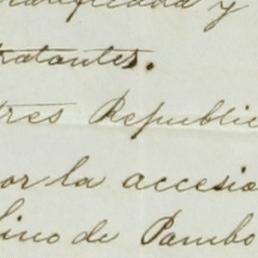 ratificada y
tratantes.
tres Republic
or la accesio
lino de Pombo